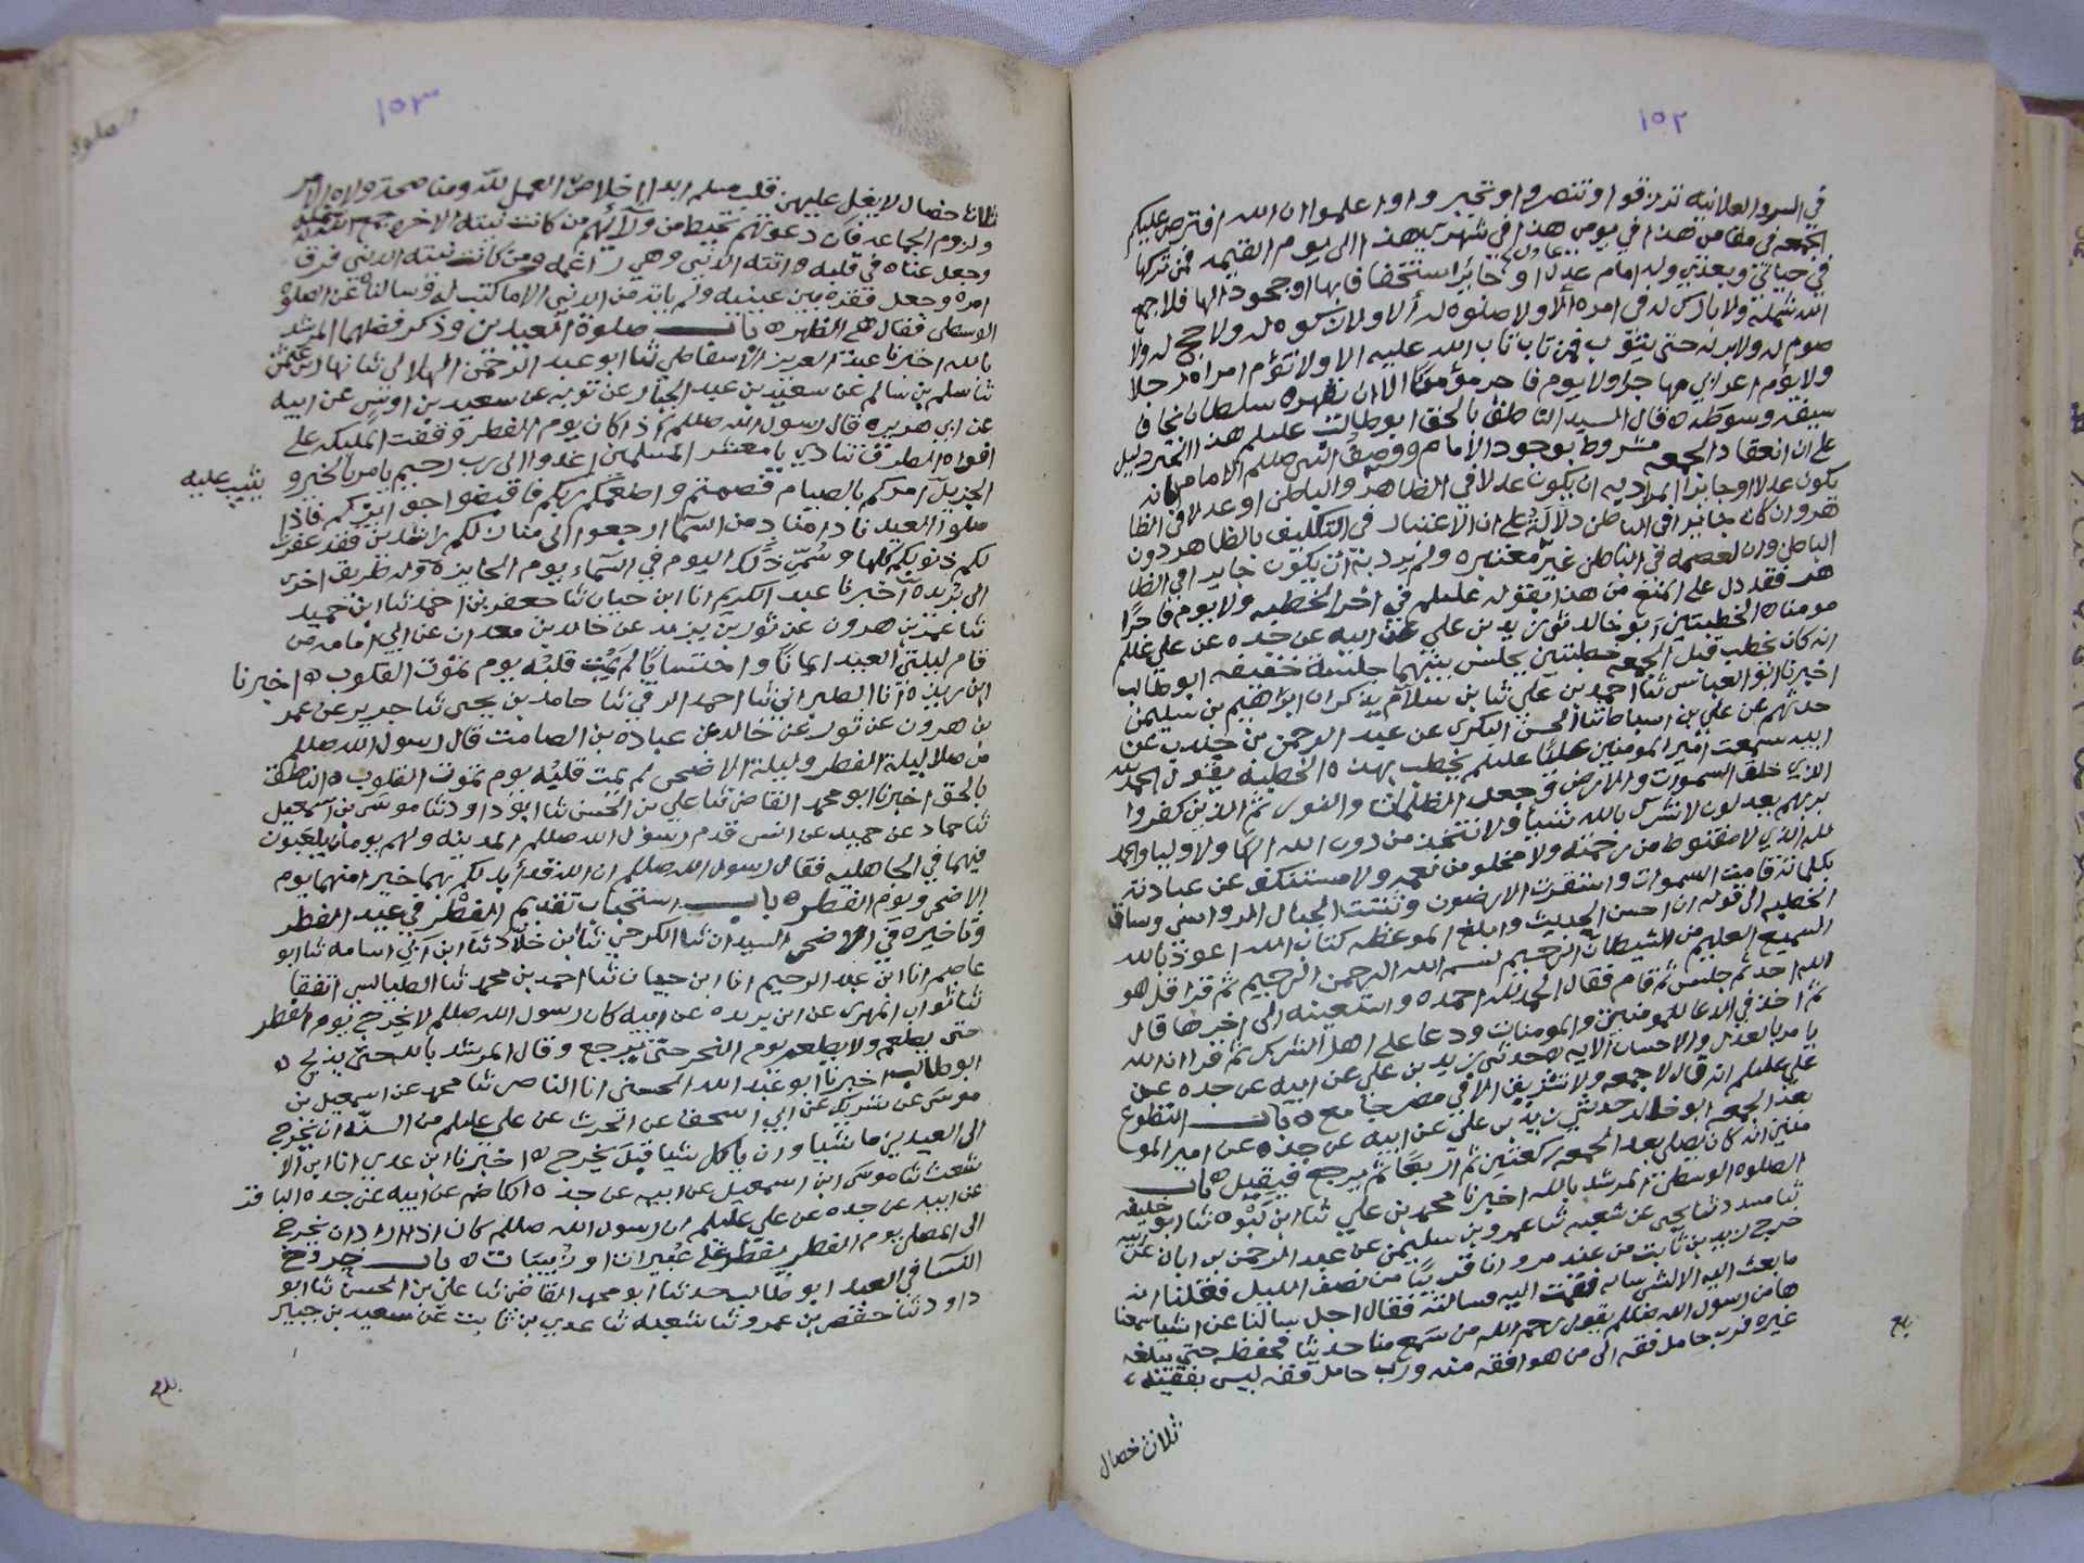 ١٥٢
في السر والعلانيه ترزقوا وتنصروا وتجبروا واعلموا ان الله افترض عليكم
الجمعه في مقامي هذا في يومي هذا في شهري هذا الى يوم القيمه فمن تركها
في حياتي وبعدي وله امام عدل او جائر استخفافا بها او جحودا لها فلا جمع
الله شمله ولا بارك له في امره ألا ولا صلوة له ألا ولا زكوه له ولا حج له ولا
صوم له ولا بر له حتى يتوب فمن تاب تاب الله عليه الا ولا تؤم امراه رجلا
ولا يؤم اعرابي مهاجرا ولا يوم فاجر مؤمنًا الا ان يقهره سلطان يخاف
سيفه وسوطه ه قال السيد الناطق بالحق ابو طالب عليلم هذا الخبر دليل
على ان انعقاد الجمعه مشروط بوجود الامام ووصف النبي صللم الامام بانه
يكون عدلا او جايرا المراد به ان يكون عدلا في الظاهر والباطن او عدلا في الظا
هر وان كان جايرا في الباطن دلالة على ان الاعتبار في التكليف بالظاهر دون
الباطن وان العصمه في الباطن غير معتبره ولم يرد به ان يكون جايرا في الظا
هر فقد دل على المنع من هذا بقوله عليلم في اخر الخطبه ولا يوم فاجرًا
مومنا ه الخطبتين ابو خالد ثني زيد بن علي عن ابيه عن جده عن علي عليلم
انه كان يخطب قبل الجمعه خطبتين يجلس بينهما جلسة خفيفه ابو طالب
اخبرنا ابو العباس ثنا احمد بن علي ثنا بن سلام يذكر ان ابراهيم بن سليمن
حدثهم عن علي بن اسباط ثنا الحسن البكري عن عبد الرحمن بن جندب عن
ابيه سمعت امير المومنين عليًا عليلم يخطب بهذه الخطبه يقول الحمد لله
الذي خلق السموات والارض وجعل الظلمات والنور ثم الذين كفروا
بربهم يعدلون لا نشرك بالله شيئا ولا نتخذ من دون الله الهًا ولا وليا والحمد
لله الذي لا مقنوط من رحمته ولا مخلو من نعمه ولا مستنكف عن عبادته
بكلماته قامت السموات واستقرت الارضون وثبتت الجبال الرواسي وساق
الخطبه الى قوله ان احسن الحديث وابلغ الموعظه كتاب الله اعوذ بالله
السميع العليم من الشيطان الرجيم بسم الله الرحمن الرحيم ثم قرا قل هو
الله احد ثم جلس ثم قام فقال الحمد لله احمده واستعينه الى اخرها قال
ثم اخذ في الدعا للمومنين والمومنات ودعا على اهل الشرك ثم قرا ان الله
يامر بالعدل والاحسان الايه ه حدثني زيد بن علي عن ابيه عن جده عن
علي عليلم انه قال لا جمعه ولا تشريق الا في مصر جامع ه باب التطوع
بعد الجمعه ابو خالد حدثني زيد بن علي عن ابيه عن جده عن امير المو
منين انه كان يصلي بعد الجمعه ركعتين ثم اربعًا ثم يرجع فيقيل ه باب
الصلوه الوسطى المرشد بالله اخبرنا محمد بن علي ثنا ابن ثنا ابو خليفه
ثنا مسدد ثنا يحيى عن شعبه ثنا عمرو بن سليمن عن عبد الرحمن بن ابان عن ابيه
خرج زيد بن ثابت من عند مروان قريبًا من نصف الليل فقلنا انه
ما بعث اليه الا لشي ساله فقمت اليه فسالته فقال اجل سالنا عن اشيا سمعنا
ها من رسول الله صللم يقول رحم الله من سمع منا حديثا فحفظه حتى يبلغه
غيره فرب حامل فقه الى من هو افقه منه ورب حامل فقه ليس بفقيه
ثلاث خصال
١٥٣
ثلاث خصال لا يغل عليهن قلب مسلم ابدا اخلاص العمل لله ومناصحة ولاه الامر
ولزوم الجماعه فان دعوتهم تحيط من ورائهم من كانت نيته الاخره جمع الله شمله
وجعل غناه في قلبه واتته الدنيا وهي راغمه ومن كانت نيته الدنيا فرق
امره وجعل فقره بين عينيه ولم ياته من الدنيا الا ما كتب له وسالناه عن الصلوة
الوسطى فقال هي الظهر ه باب صلوة العيدين وذكر فضلهما المرشد
بالله اخبرنا عبد العزيز الاسقاطي ثنا ابو عبد الرحمن الهلالي ثنا نهار بن عثمن
ثنا سلم بن سالم عن سعيد بن عبد الجبار عن توبه عن سعيد بن اوس عن ابيه
عن ابي هريره قال رسول الله صللم اذا كان يوم الفطر وقفت الملئكه على
افواه الطرق تنادي يا معشر المسلمين اغدوا الى رب رحيم يامر بالخير و
يثيب عليه
الجزيل امركم بالصيام فصمتم واطعتم ربكم فاقبضوا اجوركم فاذا
صلوا العيد نادا مناد من السما ارجعوا الى منازلكم راشدين فقد غفرت
لكم ذنوبكم كلها وسُمّي ذلك اليوم في السماء يوم الجايزه وله طريق اخرى
اخبرنا عبد الكريم انا ابن حيان ثنا جعفر بن احمد ثنا ابن حميد
ثنا عمر بن هرون عن ثور بن يزيد عن خالد بن معدان عن ابي امامه من
قام ليلتي العيد ايمانًا واحتسابًا لم يمت قلبه يوم تموت القلوب ه اخبرنا
ابن ريذه انا الطبراني ثنا احمد الرقي ثنا حامد بن يحيى ثنا جرير عن عمر
بن هرون عن ثور عن خالد عن عباده بن الصامت قال رسول الله صللم
من صلا ليلة الفطر وليلة الاضحى لم يمت قلبه يوم تموت القلوب ه الناطق
بالحق اخبرنا ابو محمد القاضي ثنا علي بن الحسن ثنا ابو داود ثنا موسى بن اسمعيل
ثنا حماد عن حميد عن انس قدم رسول الله صللم المدينه ولهم يومان يلعبون
فيهما في الجاهليه فقال رسول الله صللم ان الله قد أبدلكم بهما خيرا منهما يوم
الاضحى ويوم الفطر ه باب استحباب تقديم الفطر في عيد الفطر
وتاخيره في الاضحى السيدان ثنا الكرخي ثنا بن خلاد ثنا ابن ابي اسامه ثنا ابو
عاصم انا ابن عبد الرحيم انا ابن حيان ثنا احمد بن محمد ثنا الطيالسي اتفقا
ثنا ثواب المهري عن ابن بريده عن ابيه كان رسول الله صللم لا يخرج يوم الفطر
حتى يطعم ولا يطعم يوم النحر حتى يرجع وقال المرشد بالله حتى يذبح ه
ابو طالب اخبرنا ابو عبد الله الحسني انا الناصر ثنا محمد عن اسمعيل بن
موسى عن شريك عن ابي اسحق عن الحرث عن علي عليلم من السنة ان يخرج
الى العيدين ماشيا وان ياكل شيا قبل يخرج ه اخبرنا ابن عدي انا ابن الا
شعث ثنا موسى ابن اسمعيل عن ابيه عن جده الكاظم عن ابيه عن جده الباقر
عن ابيه عن جده عن علي عليلم ان رسول الله صللم كان اذا اراد ان يخرج
الى المصلى يوم الفطر يفطر على تميرات او زبيبات ه باب خروج
النسا في العيد ابو طالب حدثنا ابو محمد القاضي ثنا علي بن الحسن ثنا ابو
داود ثنا حفص بن عمرو ثنا شعبه ثنا عدي بن ثابت عن سعيد بن جبير